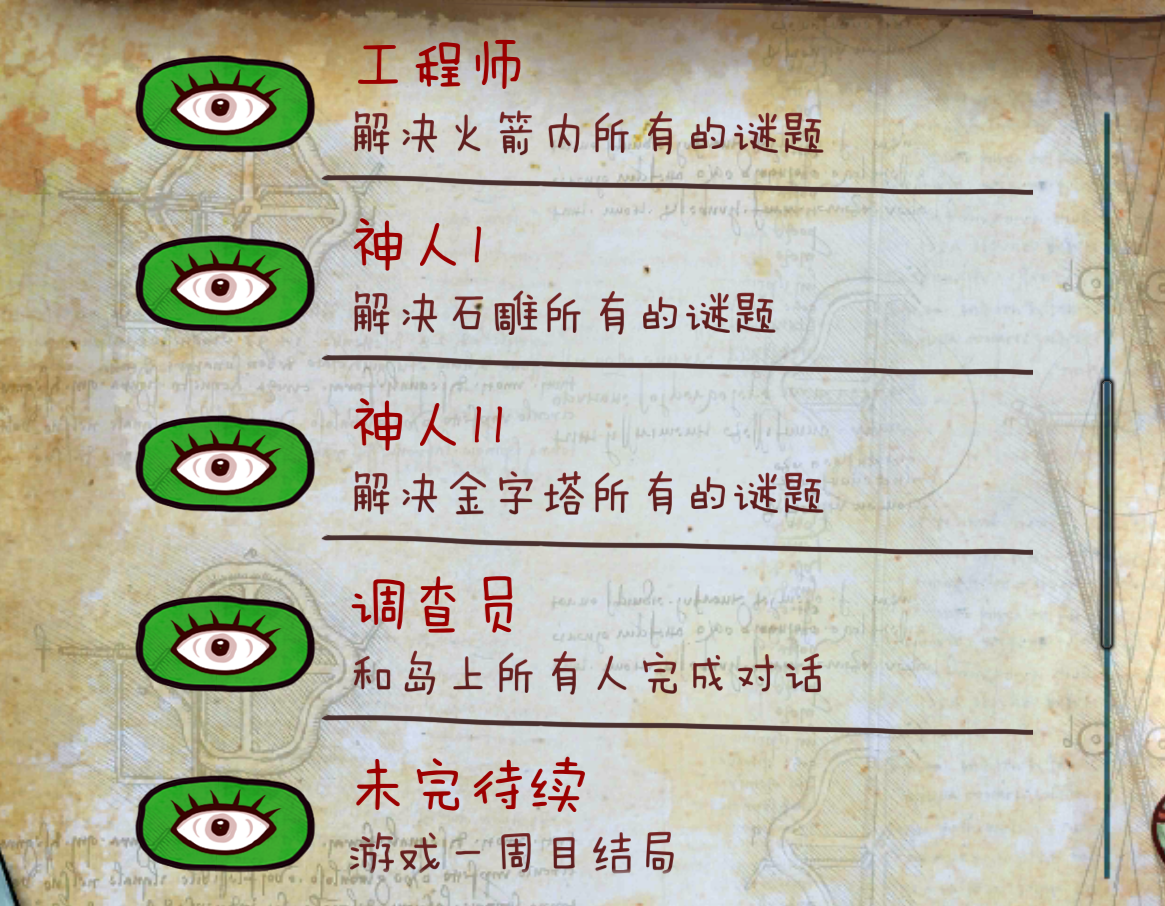 工程师
解决火箭内所有的谜题
神人I
解决石雕所有的谜题
神人II
解决金字塔所有的谜题
调查员
和岛上所有人完成对话
未完待续
游戏一周目结局